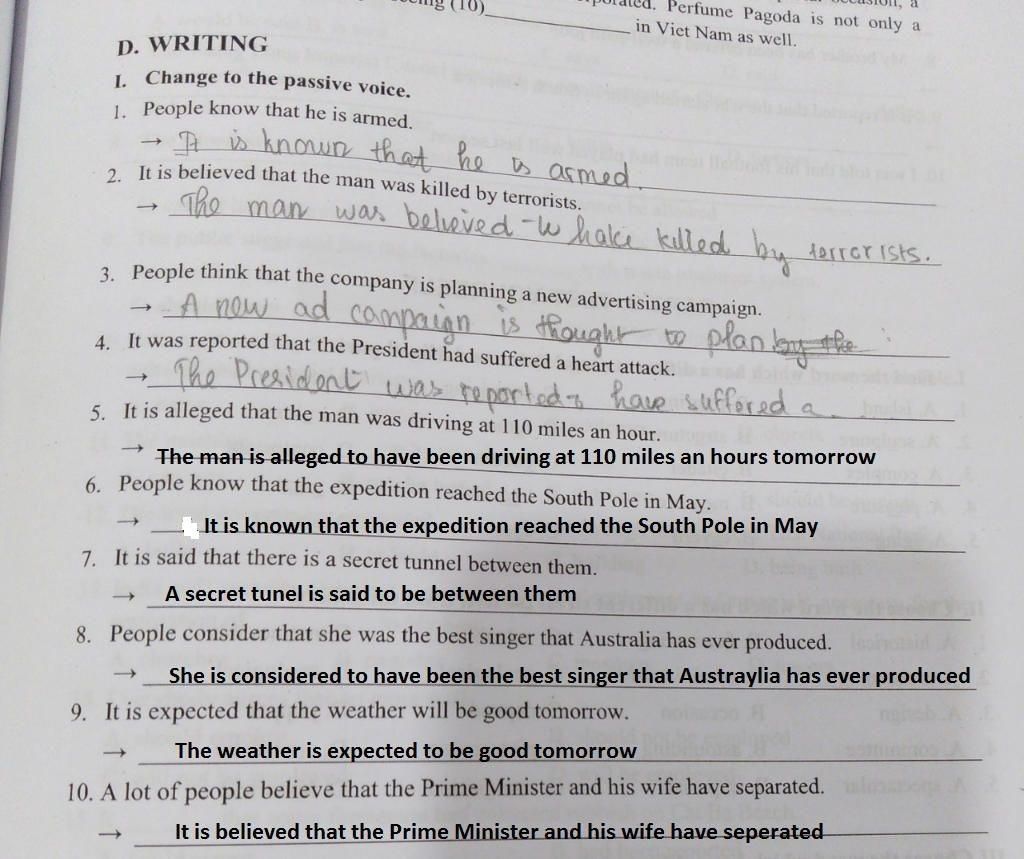 (10)
Perfume Pagoda is not only a
in Viet Nam as well.
D. WRITING
I. Change to the passive voice.
1. People know that he is armed.
→ It is known that he is armed.
2. It is believed that the man was killed by terrorists.
→ The man was believed to have killed by terrorists.
3. People think that the company is planning a new advertising campaign.
→ A new ad campaign is thought to plan by the
4. It was reported that the President had suffered a heart attack.
→ The President was reported to have suffered a
5. It is alleged that the man was driving at 110 miles an hour.
→ The man is alleged to have been driving at 110 miles an hours tomorrow
6. People know that the expedition reached the South Pole in May.
→ It is known that the expedition reached the South Pole in May
7. It is said that there is a secret tunnel between them.
→ A secret tunel is said to be between them
8. People consider that she was the best singer that Australia has ever produced.
→ She is considered to have been the best singer that Austraylia has ever produced
9. It is expected that the weather will be good tomorrow.
→ The weather is expected to be good tomorrow
10. A lot of people believe that the Prime Minister and his wife have separated.
→ It is believed that the Prime Minister and his wife have seperated